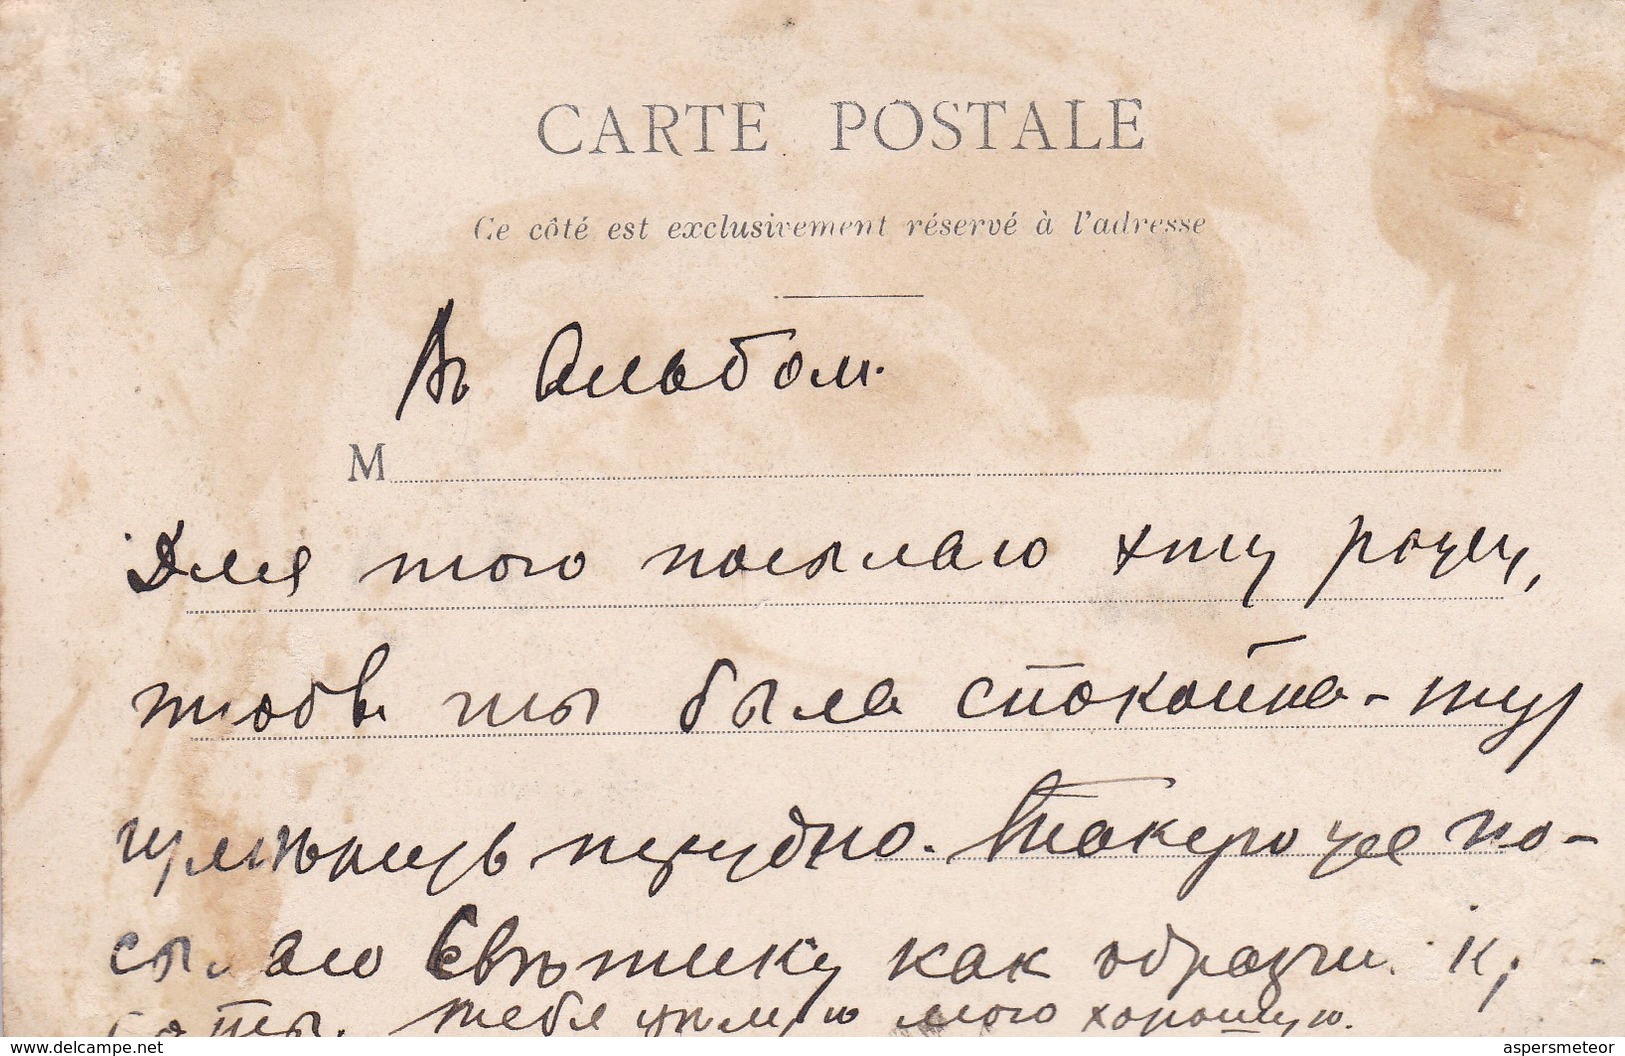 CARTE POSTALE
Ce côté est exclusivement réservé à l'adresse
Въ Альбом.
M
Для того посылаю эту рожу,
чтобы ты была спокойна - тут
трудно. Такую же по-
сылаю Свѣтику как образчик
тебя мою хорошую.
delcampe.net
aspersmeteor